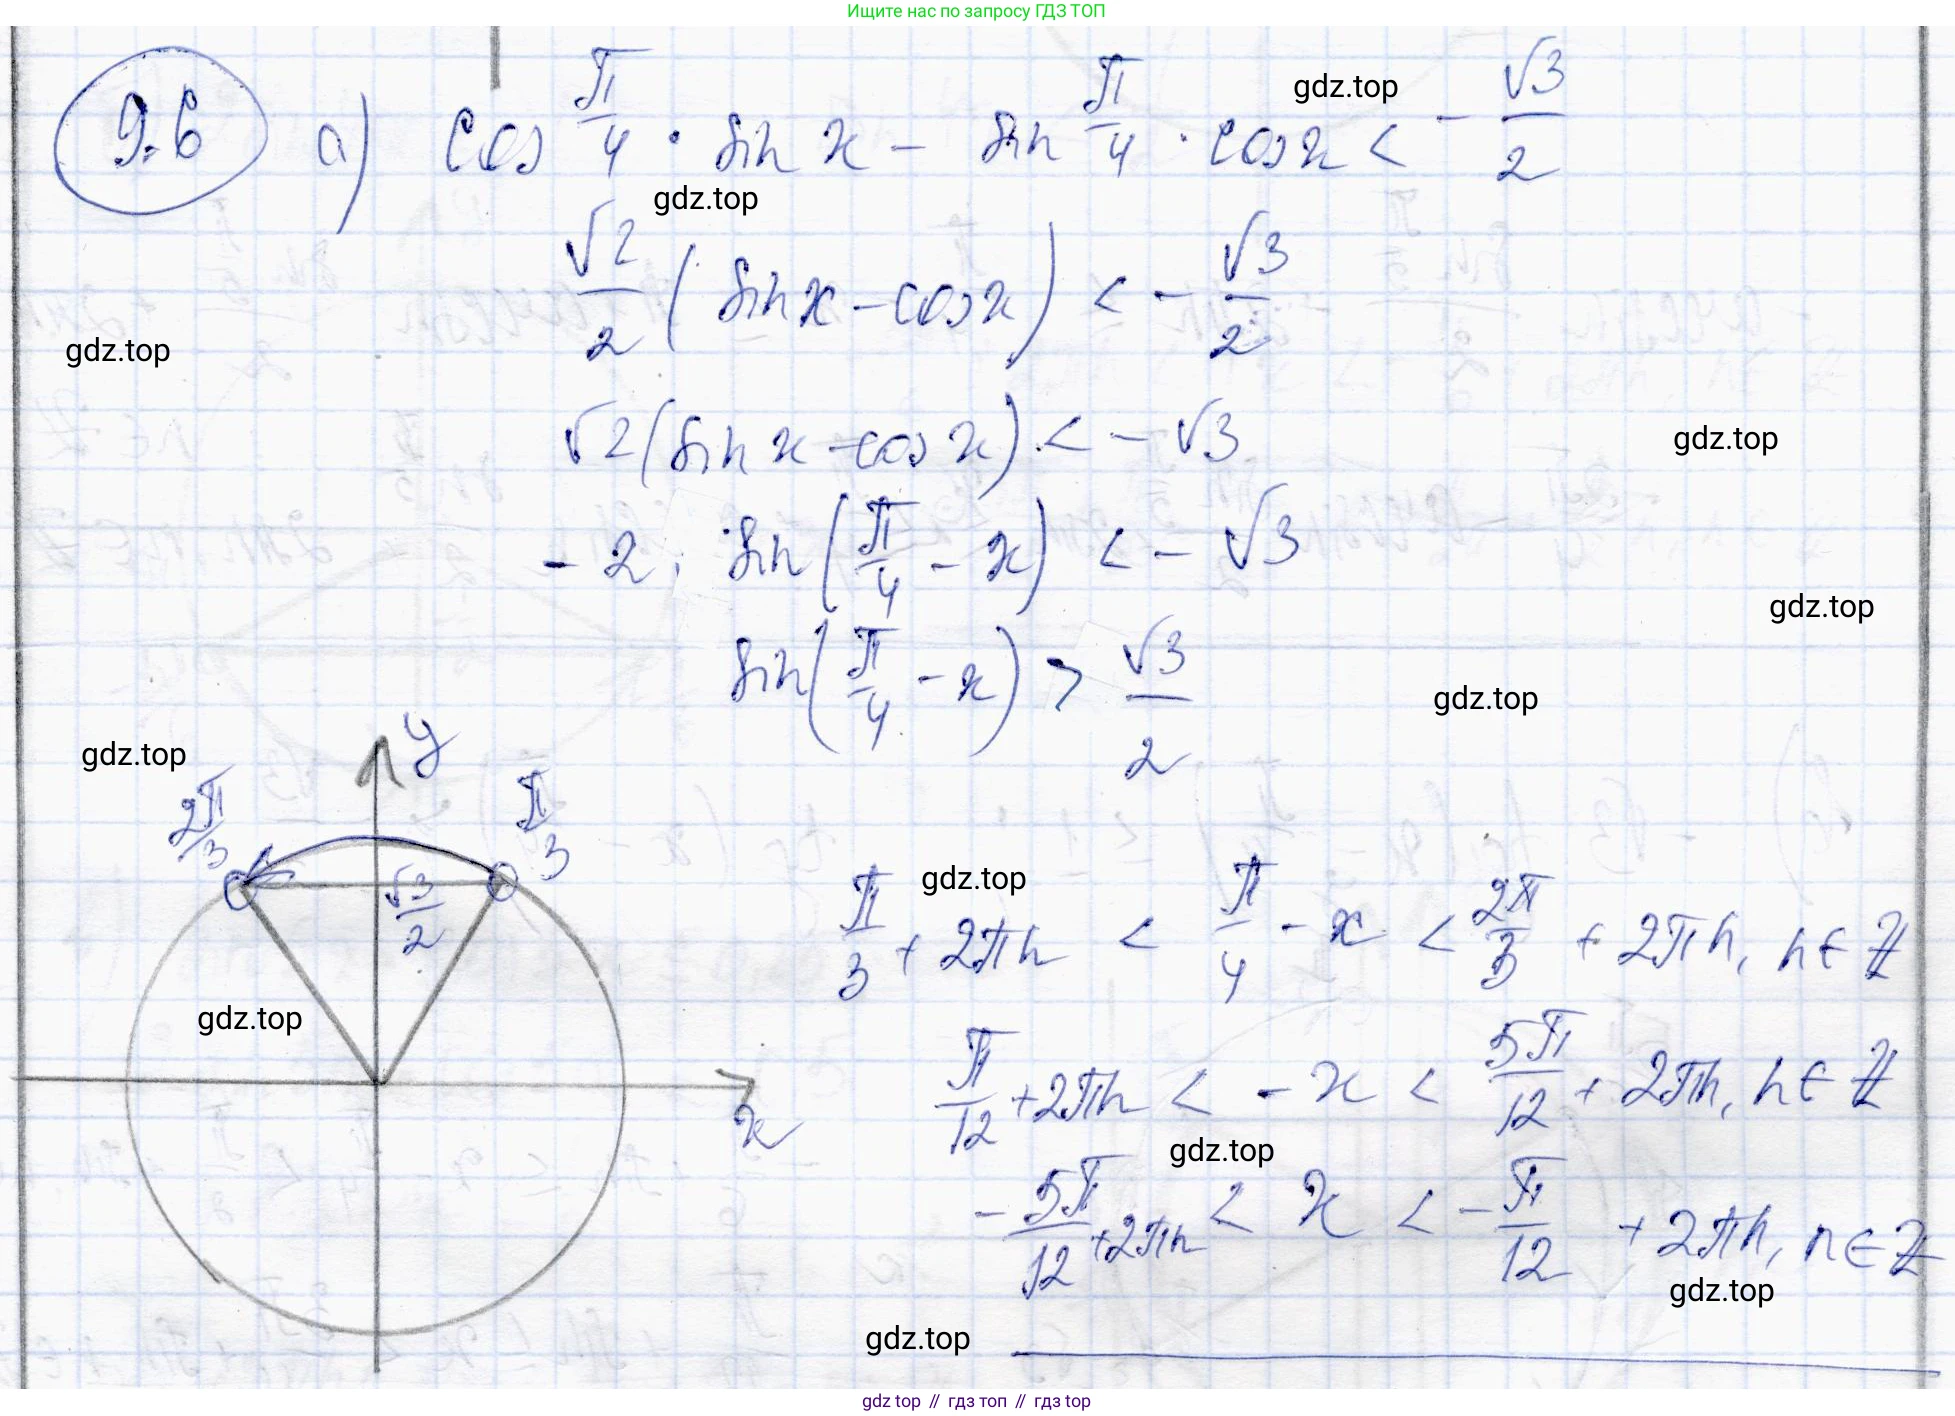 Ищите нас по запросу ГДЗ ТОП
9.6 а) cos π/4 · sin x - sin π/4 · cos x < - √3/2
gdz.top
gdz.top
√2/2 (sin x - cos x) < - √3/2
gdz.top
√2 (sin x - cos x) < - √3
gdz.top
- 2 · sin(π/4 - x) < - √3
gdz.top
sin(π/4 - x) > √3/2
gdz.top
gdz.top
y
2π/3
π/3
√3/2
gdz.top
π/3 + 2πn < π/4 - x < 2π/3 + 2πn, n ∈ Z
gdz.top
π/12 + 2πn < - x < 5π/12 + 2πn, n ∈ Z
x
gdz.top
- 5π/12 + 2πn < x < - π/12 + 2πn, n ∈ Z
gdz.top
gdz.top
gdz top // гдз топ // gdz top